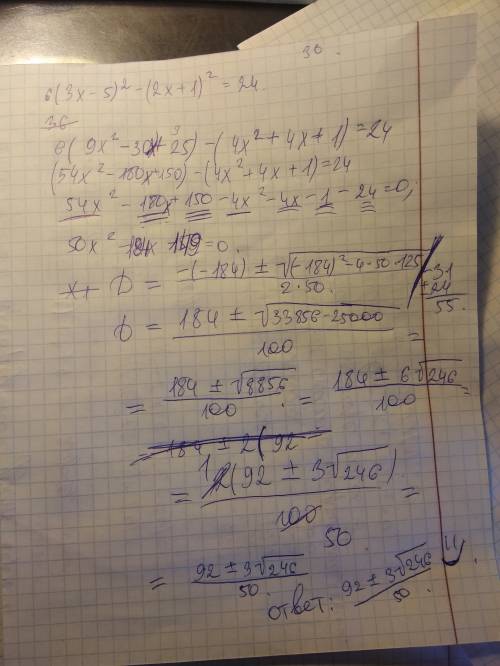 30.
6(3x-5)² - (2x+1)² = 24.
36
6(9x² - 30x + 25) - (4x² + 4x + 1) = 24
(54x² - 180x + 150) - (4x² + 4x + 1) = 24
54x² - 180x + 150 - 4x² - 4x - 1 - 24 = 0;
50x² - 184x 149 = 0.
x+ D = (-(-184) ± √((-184)² - 4·50·125)) / (2·50.)
31
+24
55.
D = (184 ± √(33856 - 25000)) / 100 =
= (184 ± √8856) / 100 = (184 ± 6√246) / 100 =
= 184 ± 2(92
= 2(92 ± 3√246) / 100 =
1
50
= (92 ± 3√246) / 50.
ответ: (92 ± 3√246) / 50.